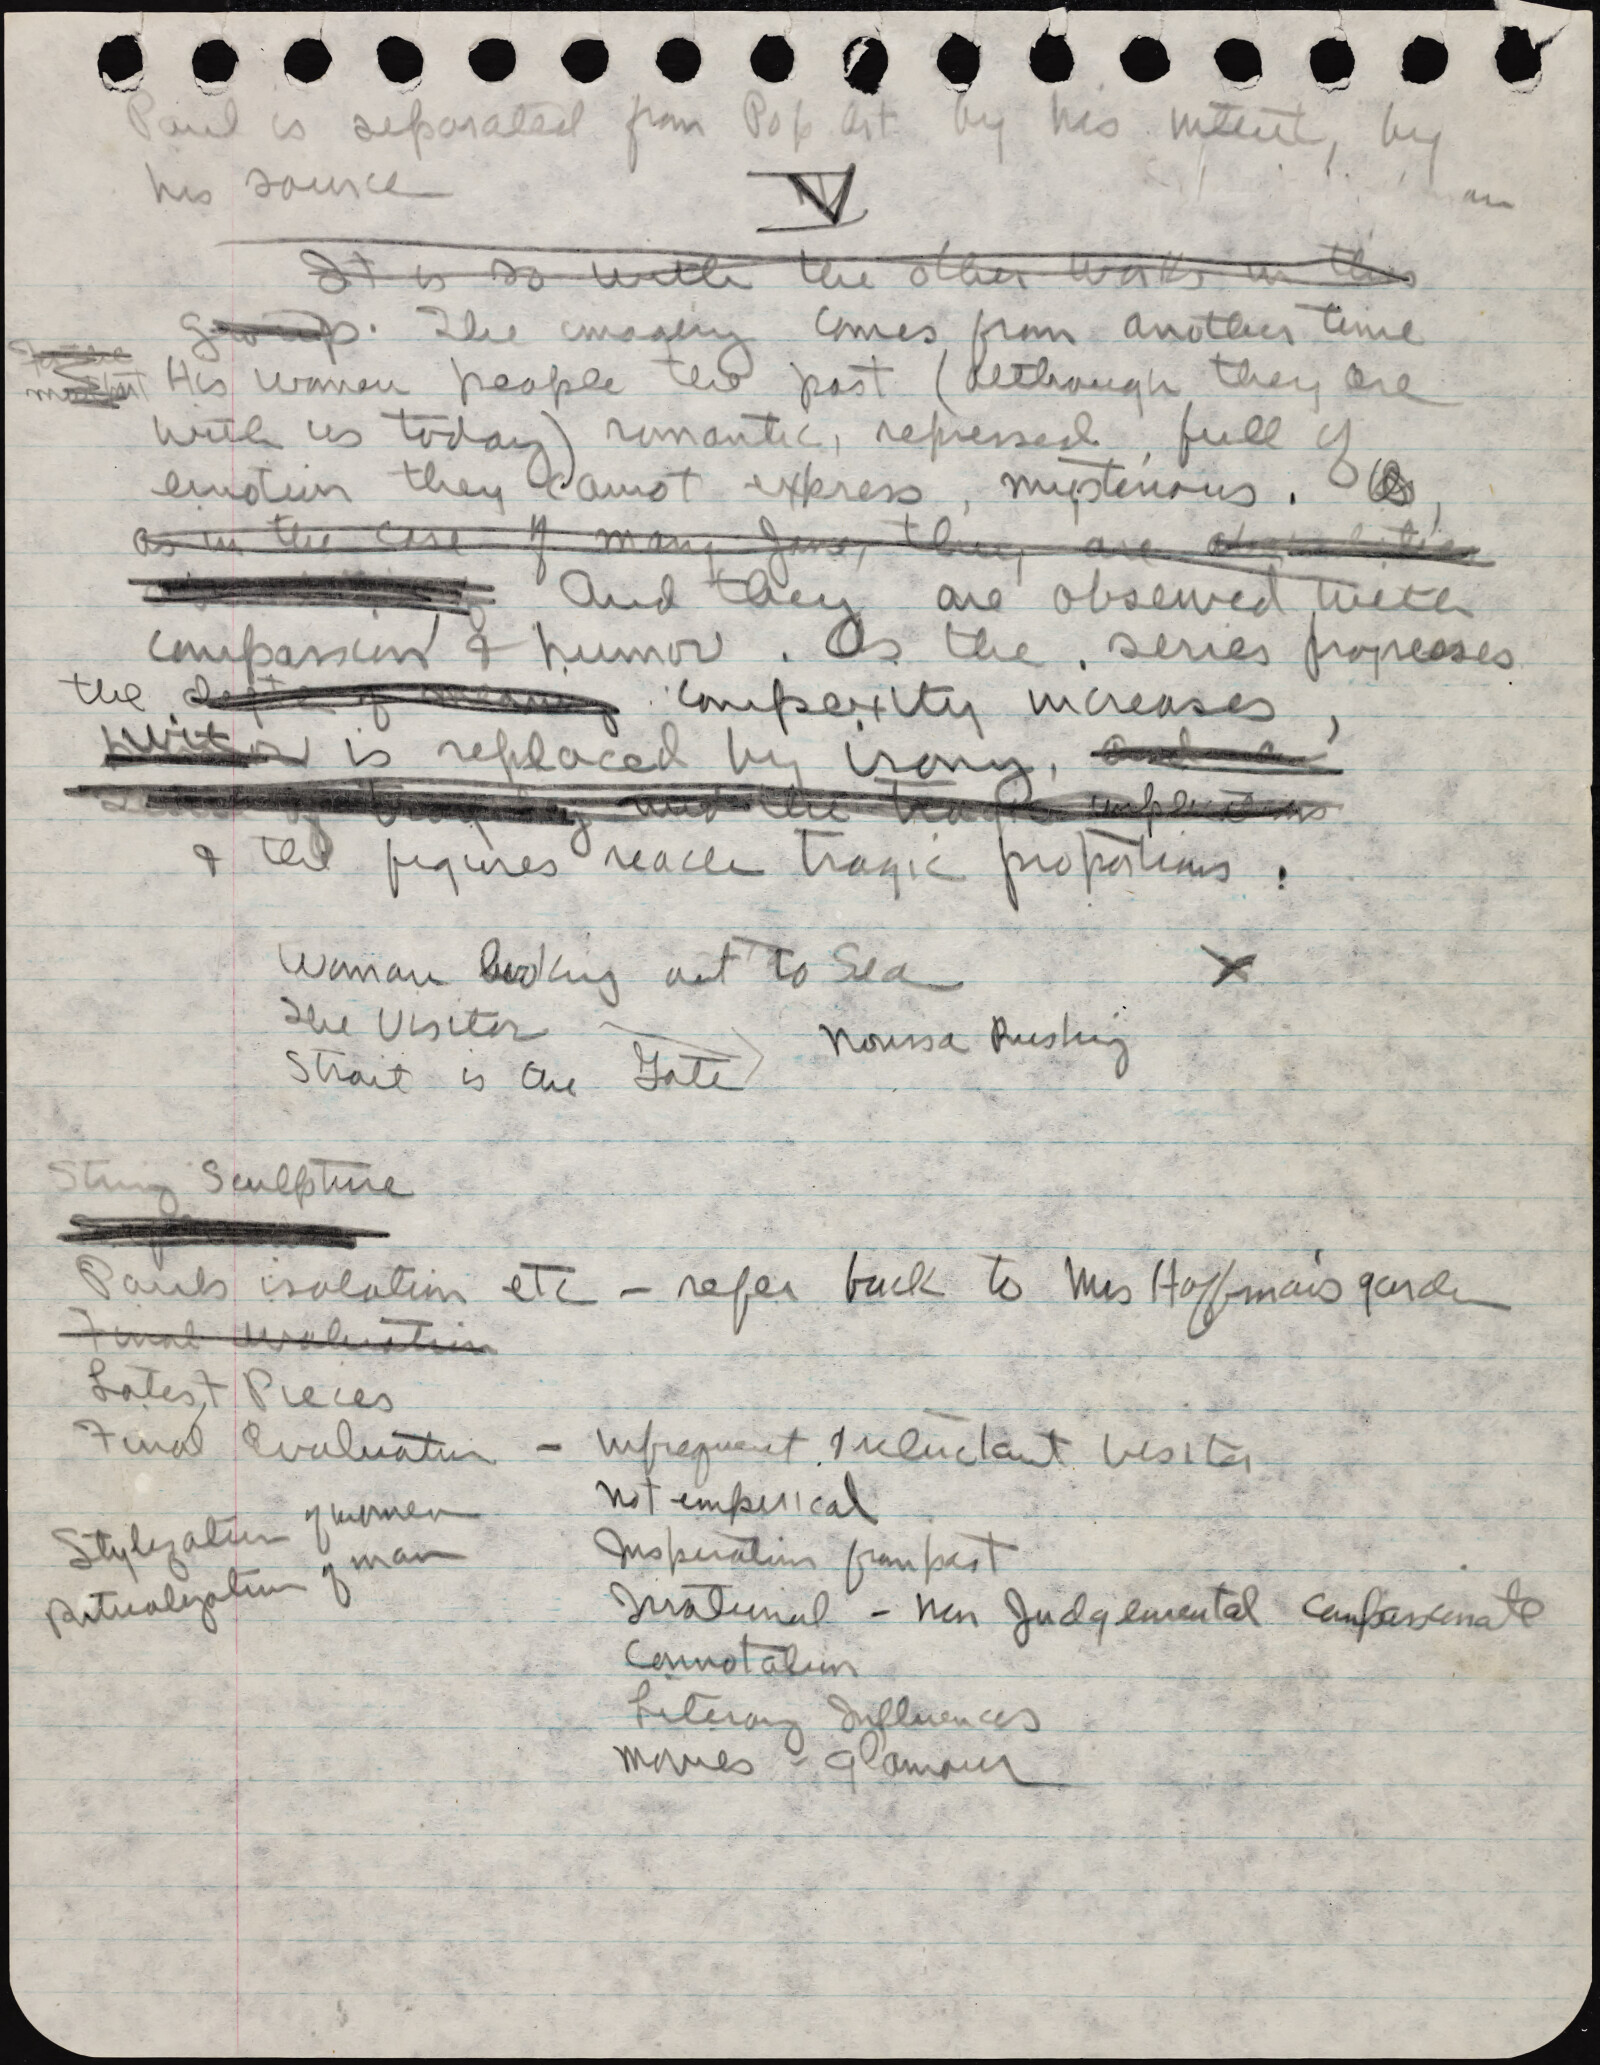 Paul is separated from Pop Art by his intent, by
his source
IV
It is so with the other works in this
group. The imagery comes from another time
His women people the past (although they are
with us today) romantic, repressed, full of
emotion they cannot express, mysterious.
as in the case of many Janes, they are
And they are observed with
compassion & humor. As the series progresses
the depth of meaning compexity increases,
wit is replaced by irony,
tragedy and the tragic implications
& the figures reach tragic proportions.
Woman looking out to Sea X
The Visitor
Strait is the Gate
String Sculpture
Pauls isolation etc - refer back to Mrs Hoffman's garden
Final evaluation
Latest Pieces
Final Evaluation - infrequent & reluctant visitor
Not emperical
Stylization of women
Inspiration from past
Ritualization of man
Irrational - Non Judgemental Compassionate
Connotation
Literary Influences
Movies - glamour